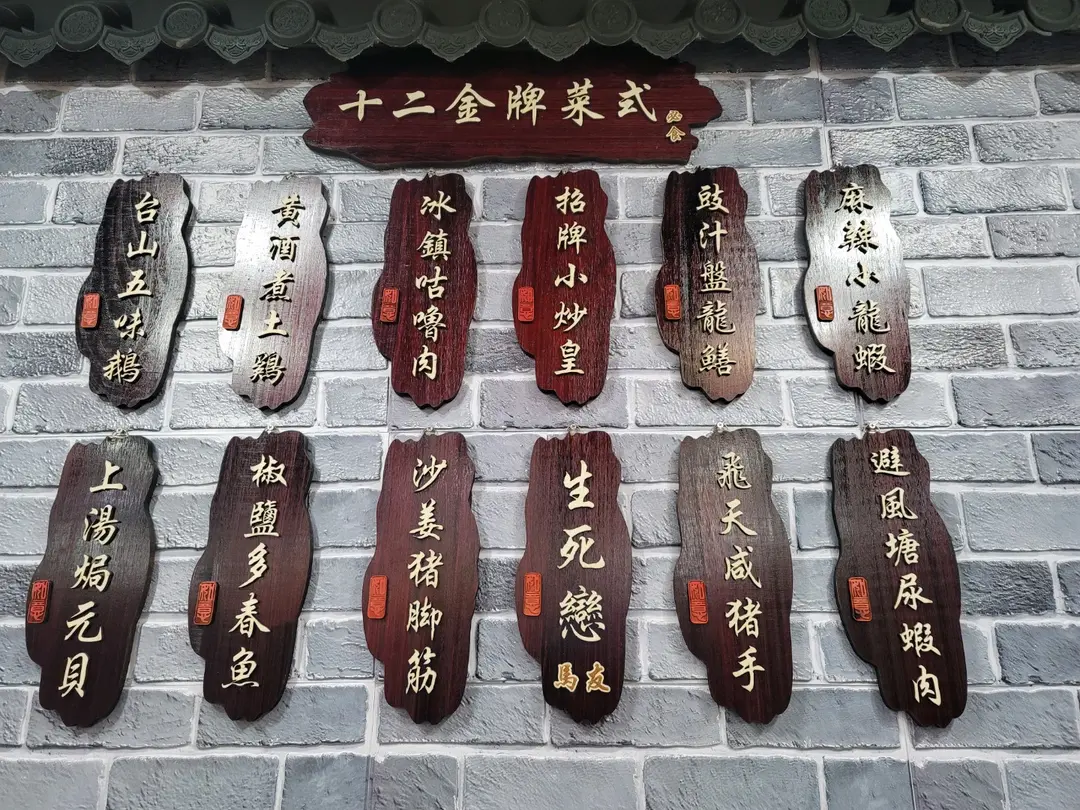 十二金牌菜式
必食
台山五味鹅
黄酒煮土鷄
冰鎮咕嚕肉
招牌小炒皇
豉汁盤龍鱔
麻辣小龍蝦
上湯焗元貝
椒鹽多春魚
沙姜猪脚筋
生死戀
馬友
飛天咸猪手
避風塘尿蝦肉